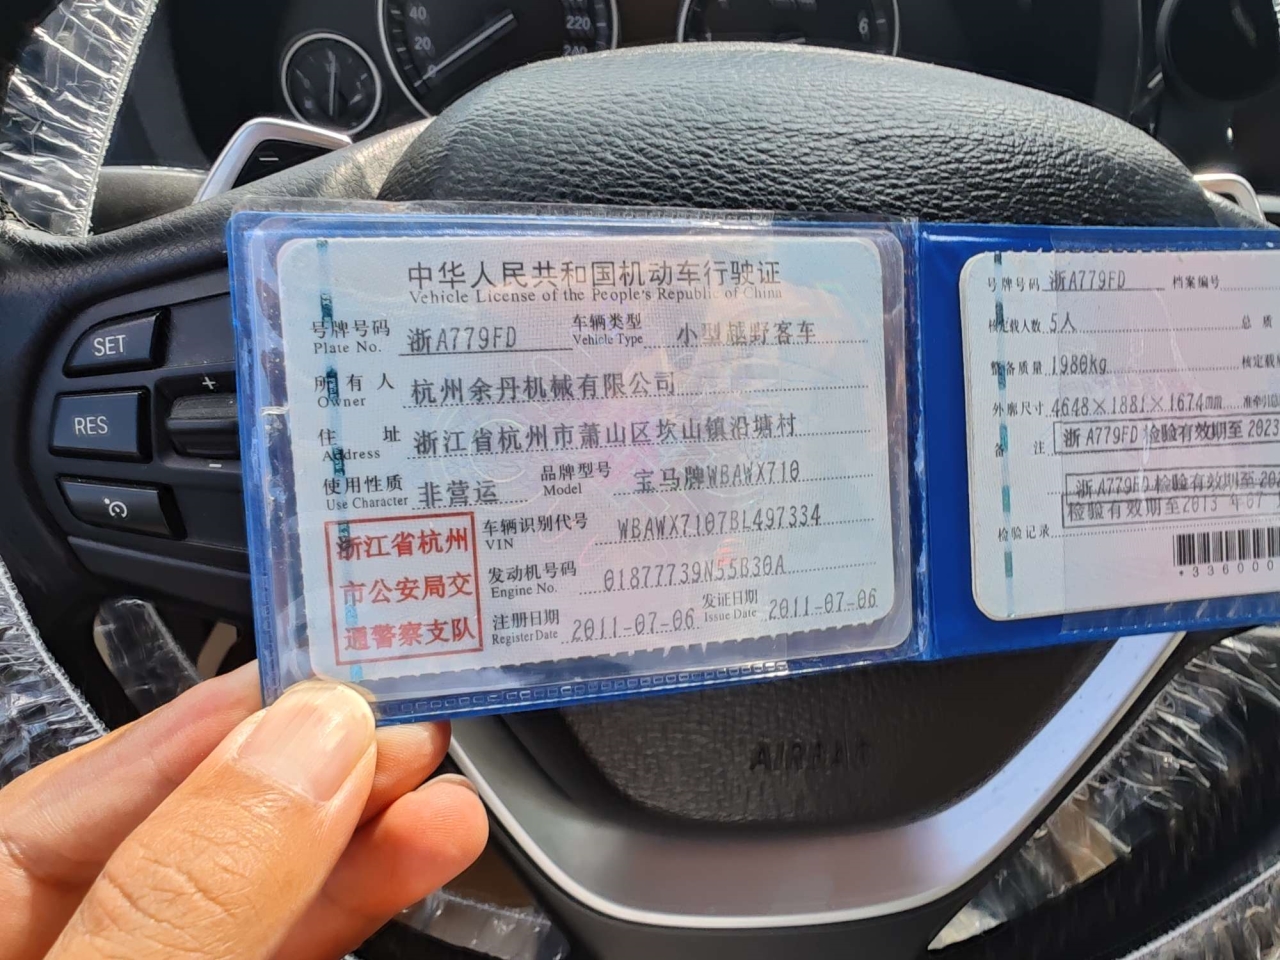 40
20
0
220
240
6
−
SET
+
RES
−
中华人民共和国机动车行驶证
Vehicle License of the People's Republic of China
号牌号码 浙A779FD 车辆类型 小型越野客车
Plate No. Vehicle Type
所有人 杭州余丹机械有限公司
Owner
住址 浙江省杭州市萧山区坎山镇沿塘村
Address
使用性质 非营运 品牌型号 宝马牌WBAWX710
Use Character Model
车辆识别代号 WBAWX7107BL497334
VIN
发动机号码 01877739N55B30A
Engine No.
注册日期 2011-07-06 发证日期 2011-07-06
Register Date Issue Date
浙江省杭州
市公安局交
通警察支队
号牌号码 浙A779FD 档案编号
核定载人数 5人 总质
整备质量 1980kg 核定载
外廓尺寸 4648×1881×1674mm
备注 浙A779FD 检验有效期至2023
浙A779FD 检验有效期至
检验有效期至2013年07
检验记录
*336000
AIRBAG